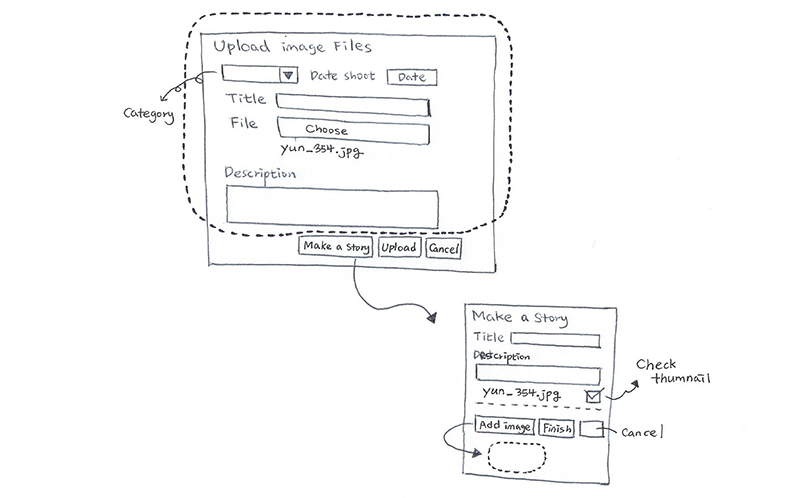 Upload image Files
Category
Date shoot
Date
Title
File
Choose
yun_354.jpg
Description
Make a Story
Upload
Cancel
Make a Story
Title
Description
yun_354.jpg
Check
thumnail
Add image
Finish
Cancel